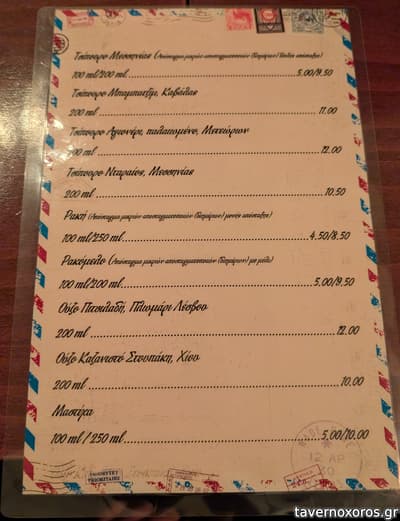 Τσίπουρο Μεσσηνίας (Απόσταγμα μικρών αποσταγματοποιών
100 ml/200 ml 5.00/9.50
Τσίπουρο Μπαμπατζίμ, Καβάλας
200 ml 11.00
Τσίπουρο Αγιονέρι, παλαιωμένο, Μετεώρων
200 ml 12.00
Τσίπουρο Νταραίος, Μεσσηνίας
200 ml 10.50
Ρακή (Απόσταγμα μικρών αποσταγματοποιών
100 ml/250 ml 4.50/8.50
Ρακόμελο (Απόσταγμα μικρών αποσταγματοποιών με μέλι)
100 ml/200 ml 5.00/9.50
Ούζο Πιτσιλαδή, Πλωμάρι Λέσβου
200 ml 12.00
Ούζο Καζανιστό Στουπάκη, Χίου
200 ml 10.00
Μαστίχα
100 ml / 250 ml 5.00/10.00
12 ΑΡ
tavernoxoros.gr